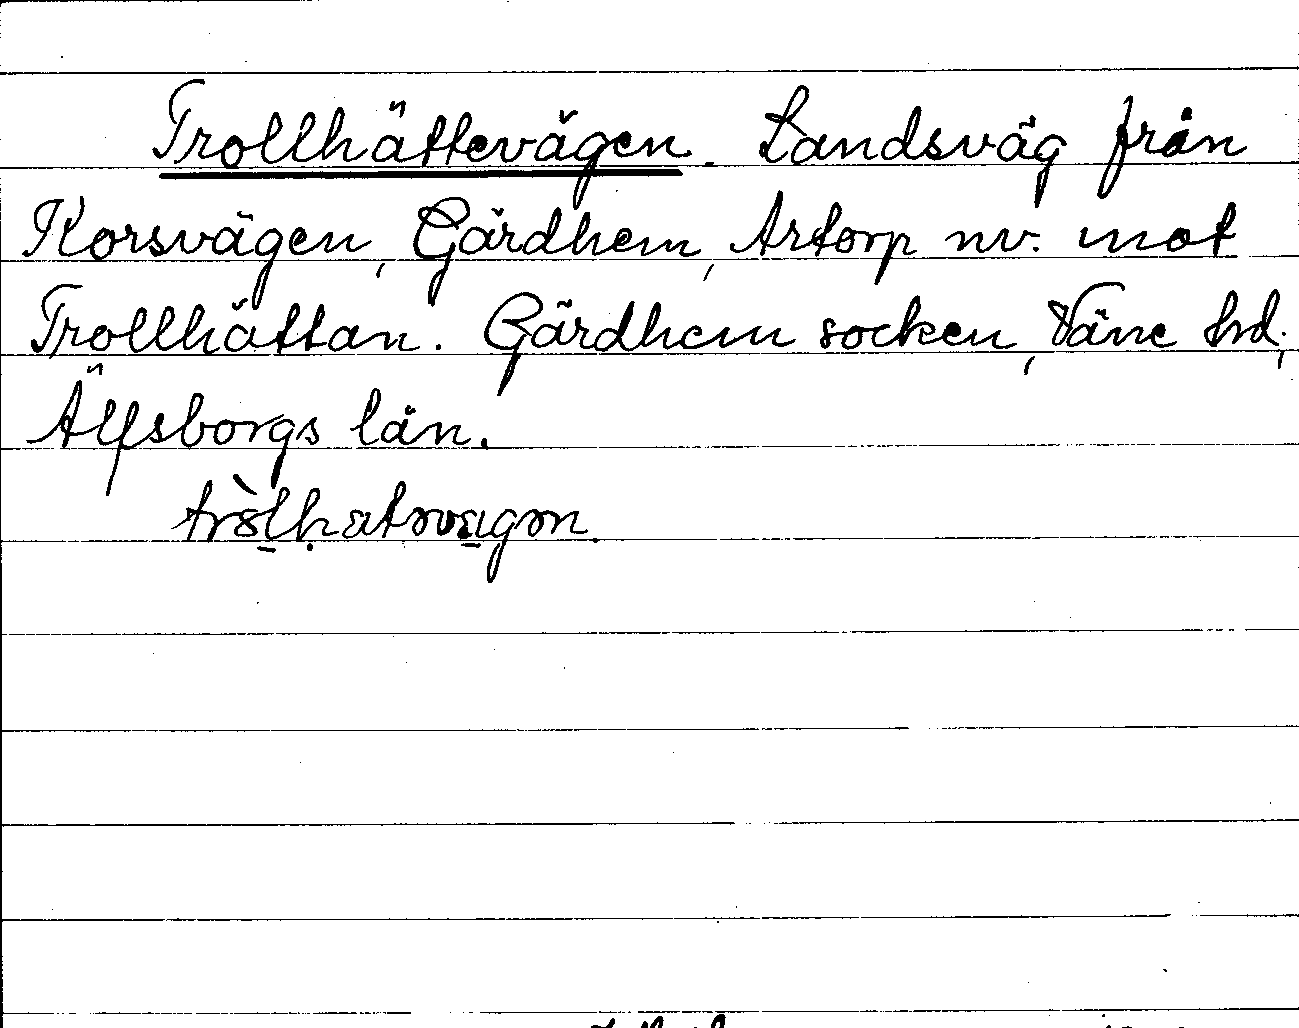 Trollhättevägen. Landsväg från
Korsvägen, Gärdhem, Artorp nv. mot
Trollhättan. Gärdhem socken, Väne hd,
Älfsborgs län.